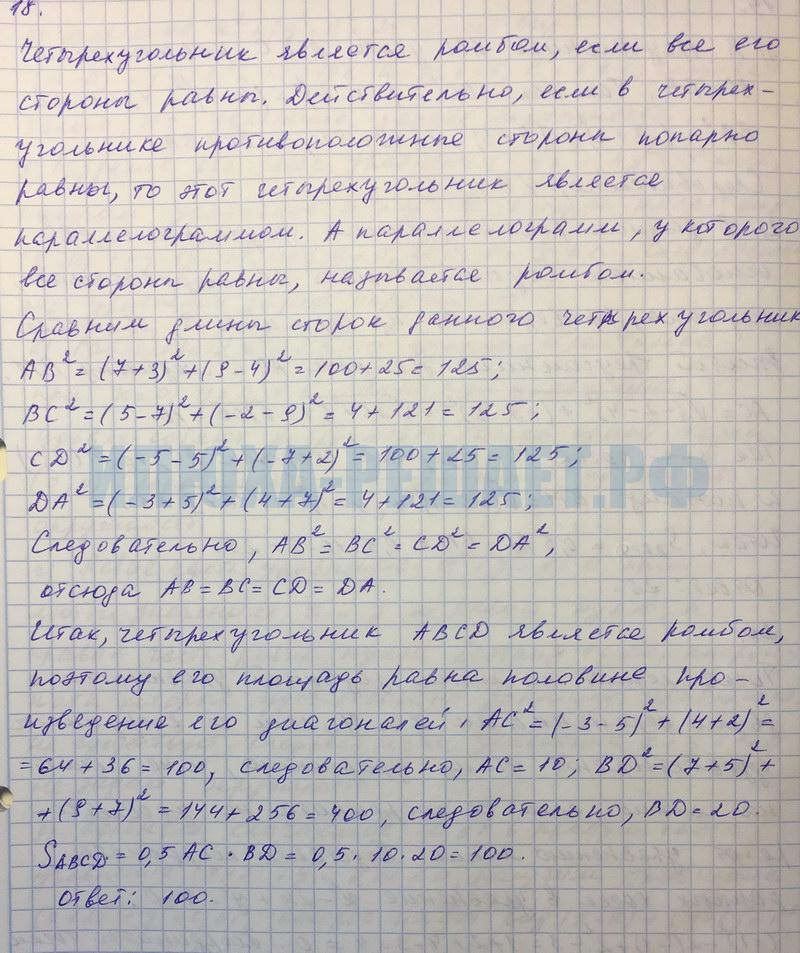 18.
Четырехугольник является ромбом, если все его
стороны равны. Действительно, если в четырех-
угольнике противоположные стороны попарно
равны, то этот четырехугольник является
параллелограммом. А параллелограмм, у которого
все стороны равны, называется ромбом.
Сравним длины сторон данного четырехугольник
AB² = (7+3)² + (9-4)² = 100 + 25 = 125;
BC² = (5-7)² + (-2-9)² = 4 + 121 = 125;
CD² = (-5-5)² + (-7+2)² = 100 + 25 = 125;
DA² = (-3+5)² + (4+7)² = 4 + 121 = 125;
Следовательно, AB² = BC² = CD² = DA²,
отсюда AB = BC = CD = DA.
Итак, четырехугольник ABCD является ромбом,
поэтому его площадь равна половине про-
изведение его диагоналей. AC² = (-3-5)² + (4+2)² =
= 64 + 36 = 100, следовательно, AC = 10; BD² = (7+5)² +
+ (9+7)² = 144 + 256 = 400, следовательно, BD = 20.
S ABCD = 0,5 AC · BD = 0,5 · 10 · 20 = 100.
Ответ: 100.